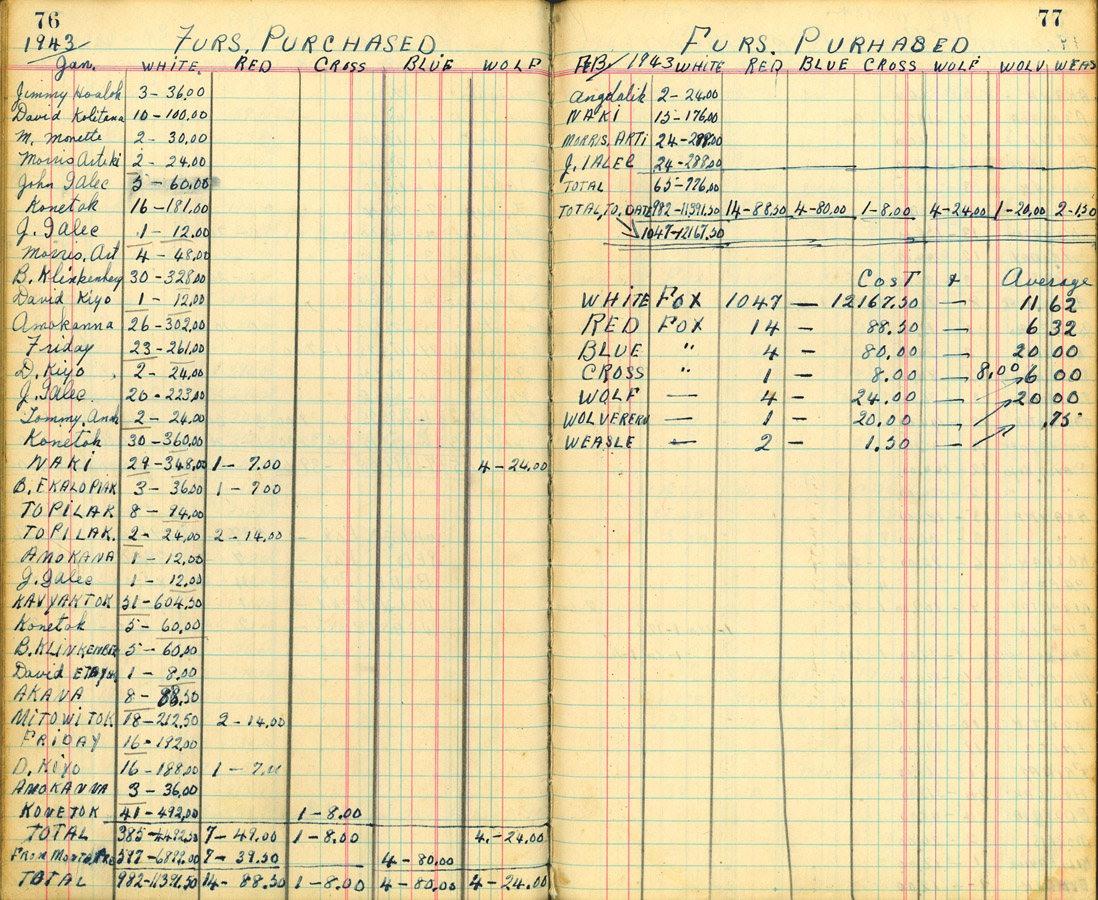 76
1943
FURS, PURCHASED
Jan. WHITE. RED CROSS BLUE WOLF
Jimmy Hoalok 3 - 36.00
David Kolitana 10 - 100.00
M. Monette 2 - 30.00
Morris Artiki 2 - 24.00
John Ialec 5 - 60.00
Konetok 16 - 181.00
J. Ialec 1 - 12.00
Morris, Art 4 - 48.00
B. Klinkenberg 30 - 328.00
David Kiyo 1 - 12.00
Amokanna 26 - 302.00
Friday 23 - 261.00
D. Kiyo 2 - 24.00
J. Ialec. 20 - 223.00
Tommy, 2 - 24.00
Konetok 30 - 360.00
NAKI 29 - 348.00 1 - 7.00 4 - 24.00
B. EKALOPIAK 3 - 36.00 1 - 7.00
TOPILAK 8 - 94.00
TOPILAK. 2 - 24.00 2 - 14.00
AMOKANA 1 - 12.00
J. Ialec 1 - 12.00
KAVYAKTOK 51 - 604.50
Konetok 5 - 60.00
B. KLINKENBER 5 - 60.00
David 1 - 8.00
AKANA 8 - 88.50
MITOWITOK 18 - 212.50 2 - 14.00
FRIDAY 16 - 192.00
D. KIYO 16 - 188.00 1 - 7.00
AMOKANNA 3 - 36.00
KONETOK 41 - 492.00 1 - 8.00
TOTAL 385 - 4492.50 7 - 49.00 1 - 8.00 4 - 24.00
FROM 597 - 6899.00 7 - 39.50 4 - 80.00
TOTAL 982 - 11391.50 14 - 88.50 1 - 8.00 4 - 80.00 4 - 24.00
77
FURS. PURHASED
FEB/1943 WHITE RED BLUE CROSS WOLF WOLV WEAS
Angdalik 2 - 24.00
NAKI 15 - 176.00
MORRIS, ARTI 24 - 288.00
J. IALEC 24 - 288.00
TOTAL 65 - 776.00
TOTAL, TO, DATE 982 - 11391.50 14 - 88.50 4 - 80.00 1 - 8.00 4 - 24.00 1 - 20.00 2 - 1.50
1047 - 12167.50
COST + Average
WHITE FOX 1047 — 12167.50 — 11 62
RED FOX 14 — 88.50 — 6 32
BLUE " 4 — 80.00 — 20 00
CROSS " 1 — 8.00 — 8.00 6 00
WOLF — 4 — 24.00 — 20 00
WOLVERERN — 1 — 20.00 — .75
WEASLE — 2 — 1.50 —